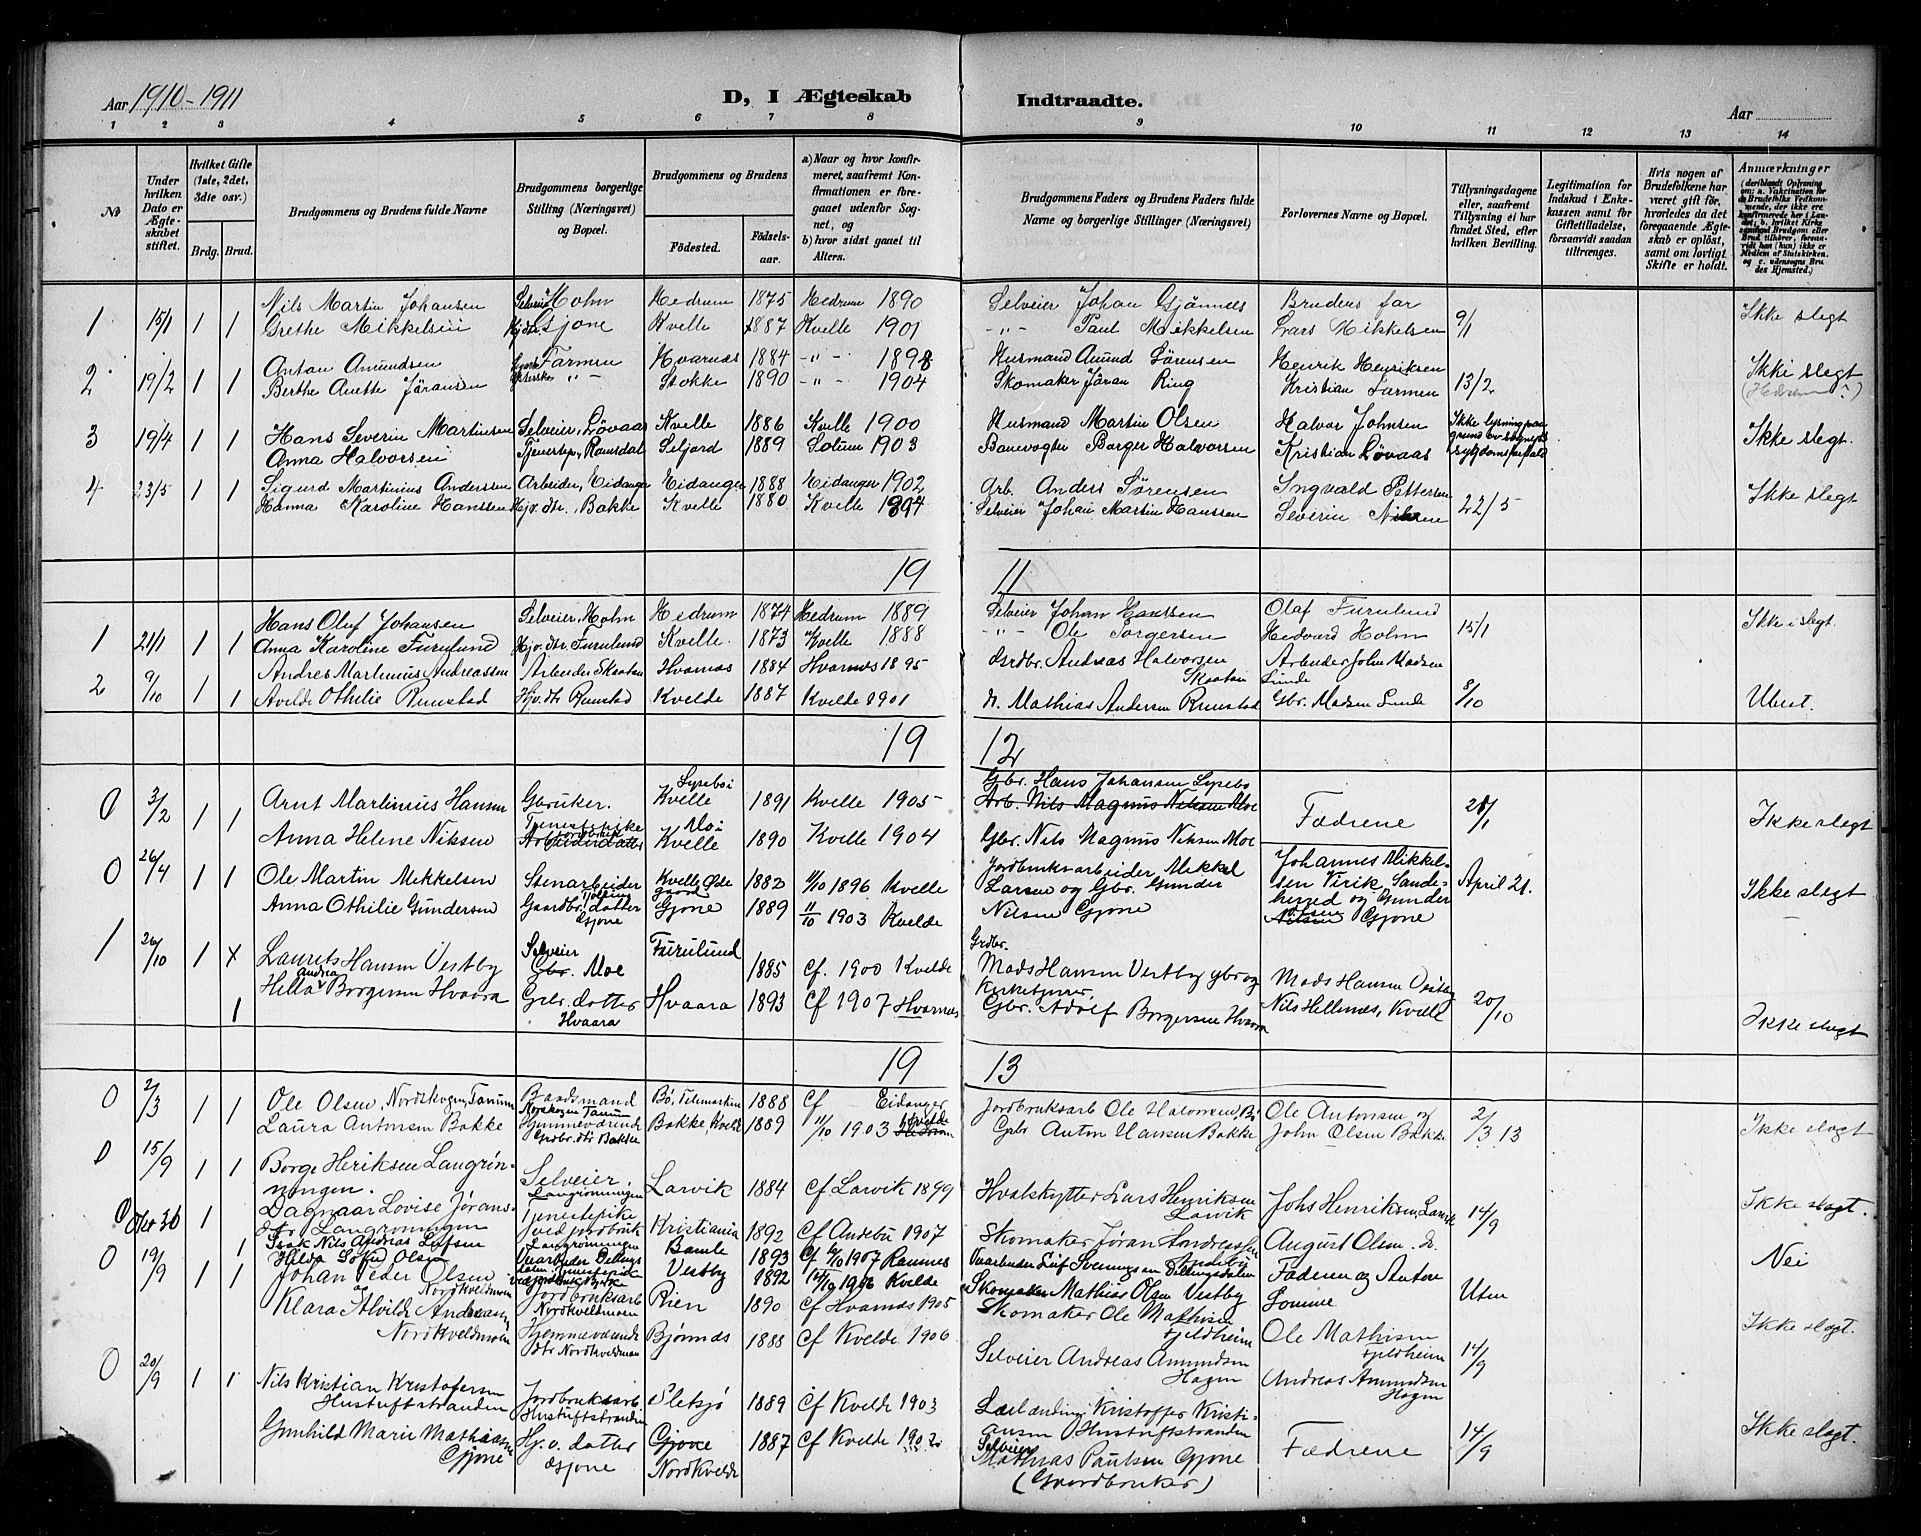 Aar 1910-1911
D, I Ægteskab
Indtraadte.
Aar
1 2 3 4 5 6 7 8 9 10 11 12 13 14
No
Under hvilken Dato er Ægteskabet stiftet.
Hvilket Gifte (1ste, 2det, 3die osv.)
Brdg. Brud.
Brudgommens og Brudens fulde Navne
Brudgommens borgerlige Stilling (Næringsvei) og Bopæl.
Brudgommens og Brudens
Födested.
Födselsaar.
a) Naar og hvor konfirmeret, saafremt Konfirmationen er foregaaet udenfor Sognet, og
b) hvor sidst gaaet til Alters.
Brudgommens Faders og Brudens Faders fulde Navne og borgerlige Stillinger (Næringsvei)
Forlovernes Navne og Bopæl.
Tillysningsdagene eller, saafremt Tillysning ei har fundet Sted, efter hvilken Bevilling.
Legitimation for Indskud i Enkekassen samt for Giftetilladelse, forsaavidt saadan tiltrænges.
Hvis nogen af Brudefolkene har været gift før, hvorledes da det foregaaende Ægteskab er opløst, samt om lovligt Skifte er holdt.
Anmærkninger
Nils Martin Johansen Selveier Holm Hedrum 1875 Hedrum 1890 Selveier Johan Gjønnes Brudens far
1 15/1 1 1 Grethe Mikkelsen Hjv.dtr. Gjone Kvelle 1887 Kvelle 1901 -"- Paul Mikkelsen Lars Mikkelsen 9/1 Ikke slegt
Anton Amundsen Farmen Hvarnæs 1884 -"- 1898 Husmand Amund Sørensen Henrik Henriksen
2 19/2 1 1 Berthe Anette Jöransen -"- Stokke 1890 -"- 1904 Skomaker Jöran Ring Kristian Farmen 13/2 Ikke slegt
3 19/4 1 1 Hans Severin Martinsen Selveier, Løvaas Kvelle 1886 Kvelle 1900 Husmand Martin Olsen Halvor Johnsen Ikke lysning paa grund av
Anna Halvorsen Tjenestep., Ramsdal Seljord 1889 Solum 1903 Banevogter Borger Halvorsen Kristian Løvaas Ikke slegt.
4 23/5 1 1 Sigurd Martinius Anderssen Arbeider, Eidanger Eidanger 1888 Eidanger 1902 Arb. Anders Sørensen Ingvald Pettersen
Hanna Karoline Hanssen Hjv. dtr., Bakke Kvelle 1880 Kvelle 1894 Selveier Johan Martin Hanssen Severin Nilsen 22/5 Ikke slegt
19 11
Hans Oluf Johansen Selveier, Holm Hedrum 1874 Hedrum 1889 Selveier Johan Hanssen Olaf Furulund
1 21/1 1 1 Anna Karoline Furulund Hjv. dtr. Furulund Kvelle. 1873 Kvelle 1888 -"- Ole Torgersen Hedvard Holm 15/1 Ikke i slegt.
Andres Martinius Andreassen Arbeider Skaatan Hvarnæs 1884 Hvarnes 1895 Andreas Halvorsen Skaatan Arbeider John Madsen Lunde
2 9/10 1 1 Avelde Othilie Rimstad Hjv. dtr Rimstad Kvelde 1887 Kvelde 1901 Mathias Andersen Rimstad Gbr. Madsen Lunde 8/10
19 12
0 3/2 1 1 Arnt Martinius Hansen Gbruker. Kvelle 1891 Kvelle 1905 Gbr. Hans Johansen Lysebo
Arb. Nils Magnus Nilsen Moe Fædrene 21/1
Anna Helene Nilsen Tjenestepike Moi Kvelle 1890 Kvelle 1904 Gbr. Nils Magnus Nilsen Moe Ikke slegt
0 26/4 1 1 Ole Martin Mikkelsen Stenarbeider Kvelle 1882 1/10 1896 Kvelle Jordbruksarbeider Mekkel Larsen og Gbr. Gunder Nilsen Gjone Johannes Mikkelsen Virik, Sandeherred og Gunder Nilsen Gjone April 21.
Anna Othilie Gundersen Gaardbr. datter Gjone Gjone 1889 11/10 1903 Kvelde Ikke slegt
1 26/10 1 x Laurits Hansen Vestby Selveier Gbr. Moe Furulund 1885 Cf. 1900 Kvelde Grdbr. Mads Hansen Vestby gbr og Kirketjener Mads Hansen Vestby
1 Hella Andrea Borgersen Hvaara Gbr. dotter Hvaara Hvaara 1893 Cf 1907 Hvarnes Gbr. Adolf Borgersen Hvaara Nils Hellenes, Kvelle 20/10 Ikke slegt
19 13
0 2/3 1 1 Ole Olsen, Nordskogen, Tanum Baadsmand Norskogen Tanum Bø, Telemarken 1888 Cf Eidanger Jordbruksarb Ole Halvorsen, Bö Ole Antonsen og
Laura Antonsen Bakke Hjemmeværende Gbr dtr Bakke Bakke, Kvelde 1889 11/10 1903 Kvelde Gbr Anton Hansen Bakke John Olsen Bakke 2/3 13 Ikke slegt
0 15/9 1 1 Borge Heriksen Langrønningen. Selveier, Langrönningen Larvik 1884 Cf Larvik 1899 Hvalskytter Lars Henriksen Larvik Johs Henriksen, Larvik 14/9 Ikke slegt.
Dagmaar Lovise Jørans- Langrønningen Tjenestepike Langrønningen Kristiania 1892 Cf Andebu 1907 Skomaker Jøran Andreassen August Olsen
Isak Nils Andreas Leifsen Bamle 1893 1907 Ramnes Nei
Hilda Sofie Olsen Vestby 1892 1906 Kvelde Skomaker Mathias Olsen Vestby Fæderen og Anton Lomme
0 19/9 1 1 Johan Peder Olsen Nordkveldmoen Jordbruksarb Nordkveldmoen Rien 1890 Cf Hvarnæs 1905 Skomaker Ole Mathisen Fjeldheim Ole Mathisen Fjeldheim 14/9 Ikke slegt.
Klara Alvilde Andreasen Nordkveldmoen Hjemmeværende dtr Nordkveldmoen Bjørnnes 1888 Cf Kvelde 1906 Selveier Andreas Amundsen Hagen Andreas Amundsen Hagen
0 20/9 1 1 Nils Kristian Kristofersen Hustuftstranden Jordbruksarb. Hustuftstranden Sletsjø 1889 Cf Kvelde 1903 Kristoffer Kristiansen Hustuftstranden
Gunhild Marie Mathiasen Gjone Hj. v. datter Gjone Gjone Nordkvelde 1887 Cf Kvelde 1902 Selveier Mathias Paulsen Gjone (Gaardbruker) Fædrene 14/9 Ikke slegt.